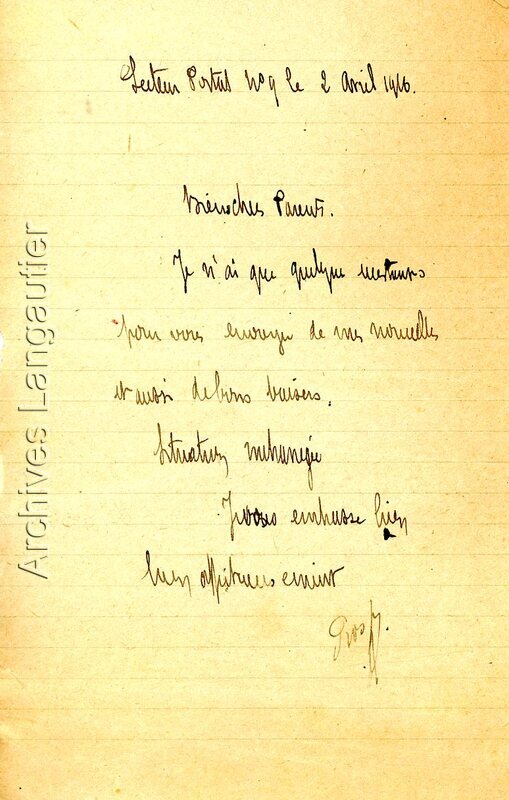 Secteur Postal N° 9 le 2 Avril 1916.
Bien chers Parents.
Je n'ai que quelque instants
pour vous envoyer de mes nouvelles
et aussi de bons baisers.
Situation inchangée
Je vous embrasse bien
bien affectueusement
Archives Langautier